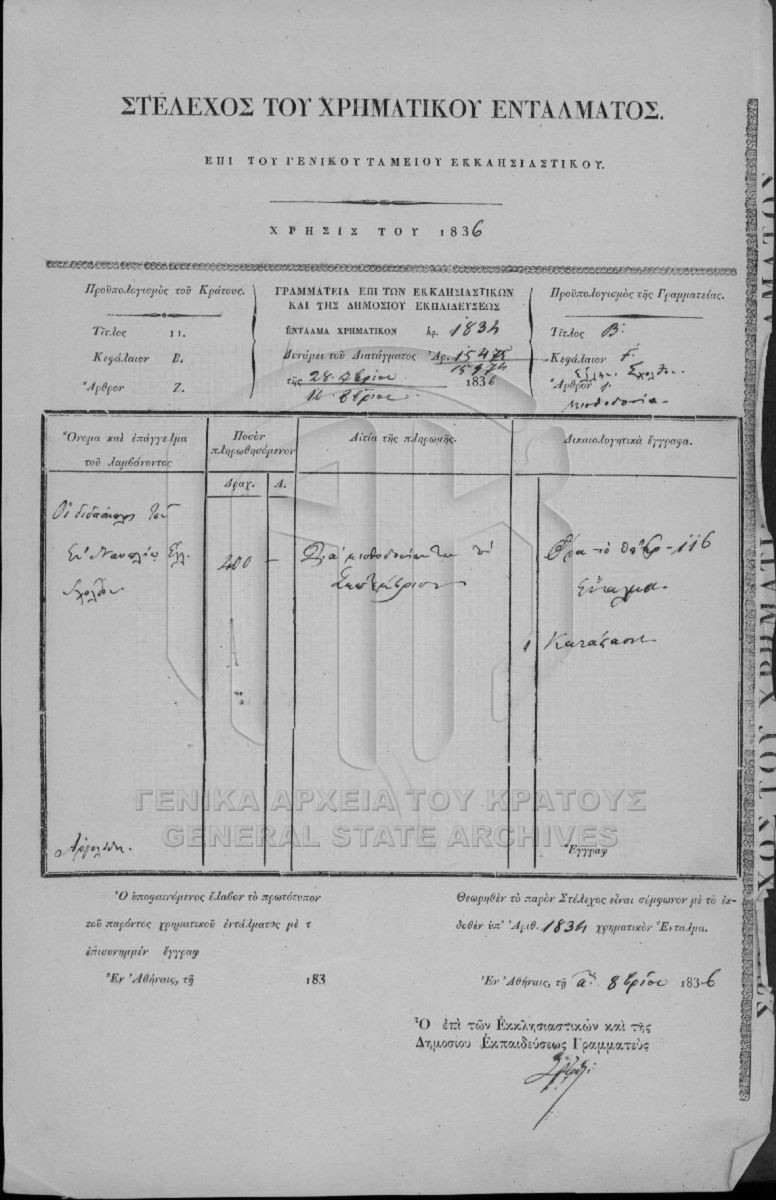 ΣΤΕΛΕΧΟΣ ΤΟΥ ΧΡΗΜΑΤΙΚΟΥ ΕΝΤΑΛΜΑΤΟΣ.
ΕΠΙ ΤΟΥ ΓΕΝΙΚΟΥ ΤΑΜΕΙΟΥ ΕΚΚΛΗΣΙΑΣΤΙΚΟΥ.
ΧΡΗΣΙΣ ΤΟΥ 1836
Προϋπολογισμὸς τοῦ Κράτους.
Τίτλος 11.
Κεφάλαιον Β.
Ἄρθρον 2.
ΓΡΑΜΜΑΤΕΙΑ ΕΠΙ ΤΩΝ ΕΚΚΛΗΣΙΑΣΤΙΚΩΝ
ΚΑΙ ΤΗΣ ΔΗΜΟΣΙΟΥ ΕΚΠΑΙΔΕΥΣΕΩΣ
ΕΝΤΑΛΜΑ ΧΡΗΜΑΤΙΚΟΝ Ἀρ. 1834
Δυνάμει τοῦ Διατάγματος Ἀρ. 15475
15974
τῆς 28 1836
16
Προϋπολογισμὸς τῆς Γραμματείας.
Τίτλος Β
Κεφάλαιον
Ἑλλην. Σχολεῖον
Ἄρθρον 1.
μισθοδοσία
Ὄνομα καὶ ἐπάγγελμα
τοῦ λαμβάνοντος
Ποσὸν
πληρωθησόμενον
Δραχ. Λ.
Αἰτία τῆς πληρωμῆς.
Δικαιολογητικὰ ἔγγραφα.
Οἱ διδάσκαλοι τοῦ
ἐν Ναυπλίῳ Ἑλλ.
σχολείου
400 —
Διὰ μισθοδοσίαν των τοῦ
Σεπτεμβρίου
Ὅρα τὸ 116
ἔνταλμα
1 Κατάστασι
Ἀργολίδος.
Ἔγγραφ
Ὁ ὑποφαινόμενος ἔλαβον τὸ πρωτότυπον
τοῦ παρόντος χρηματικοῦ ἐντάλματος μὲ τ
ἐπισυνημμέν ἔγγραφ
Ἐν Ἀθήναις, τῇ 183
Θεωρηθὲν τὸ παρὸν Στέλεχος εἶναι σύμφωνον μὲ τὸ ἐκ-
δοθὲν ὑπ' Ἀριθ. 1834 χρηματικὸν Ἔνταλμα.
Ἐν Ἀθήναις, τῇ α 8βρίου 1836
Ὁ ἐπὶ τῶν Ἐκκλησιαστικῶν καὶ τῆς
Δημοσίου Ἐκπαιδεύσεως Γραμματεὺς
ΓΕΝΙΚΑ ΑΡΧΕΙΑ ΤΟΥ ΚΡΑΤΟΥΣ
GENERAL STATE ARCHIVES